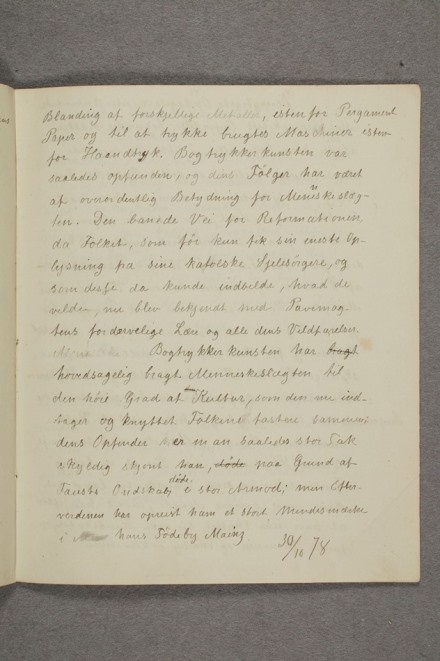 Blanding af forskjellige Metaller, istenfor Pergament
Papir og til at trykke brugtes Maskiner isten-
for Haandtryk. Bogtrykkerkunsten var
saaledes opfunden, og dens Følger har været
af overordentlig Betydning for Menneskeslæg-
ten. Den banede Vei for Reformationen
da Folket, som før kun fik sin eneste Op-
lysning fra sine katolske Sjelesørgere, og
som disse da kunde indbilde, hvad de
vilde, nu blev bekjendt med Pavemag-
tens fordærvelige Lære og alle dens Vildfarelser.
Bogtrykkerkunsten har bragt
hovedsagelig bragt Menneskeslægten til
den høie Grad af Kultur, som den nu ind-
tager og knyttet Folkene fastere sammen;
dens Opfinder er man saaledes stor Tak
skyldig skjønt han, døde paa Grund af
Fausts Ondskab, døde i stor Armod; men Efter-
verdenen har opreist ham et stort Mindesmærke
i hans Fødeby Mainz
30/10 78